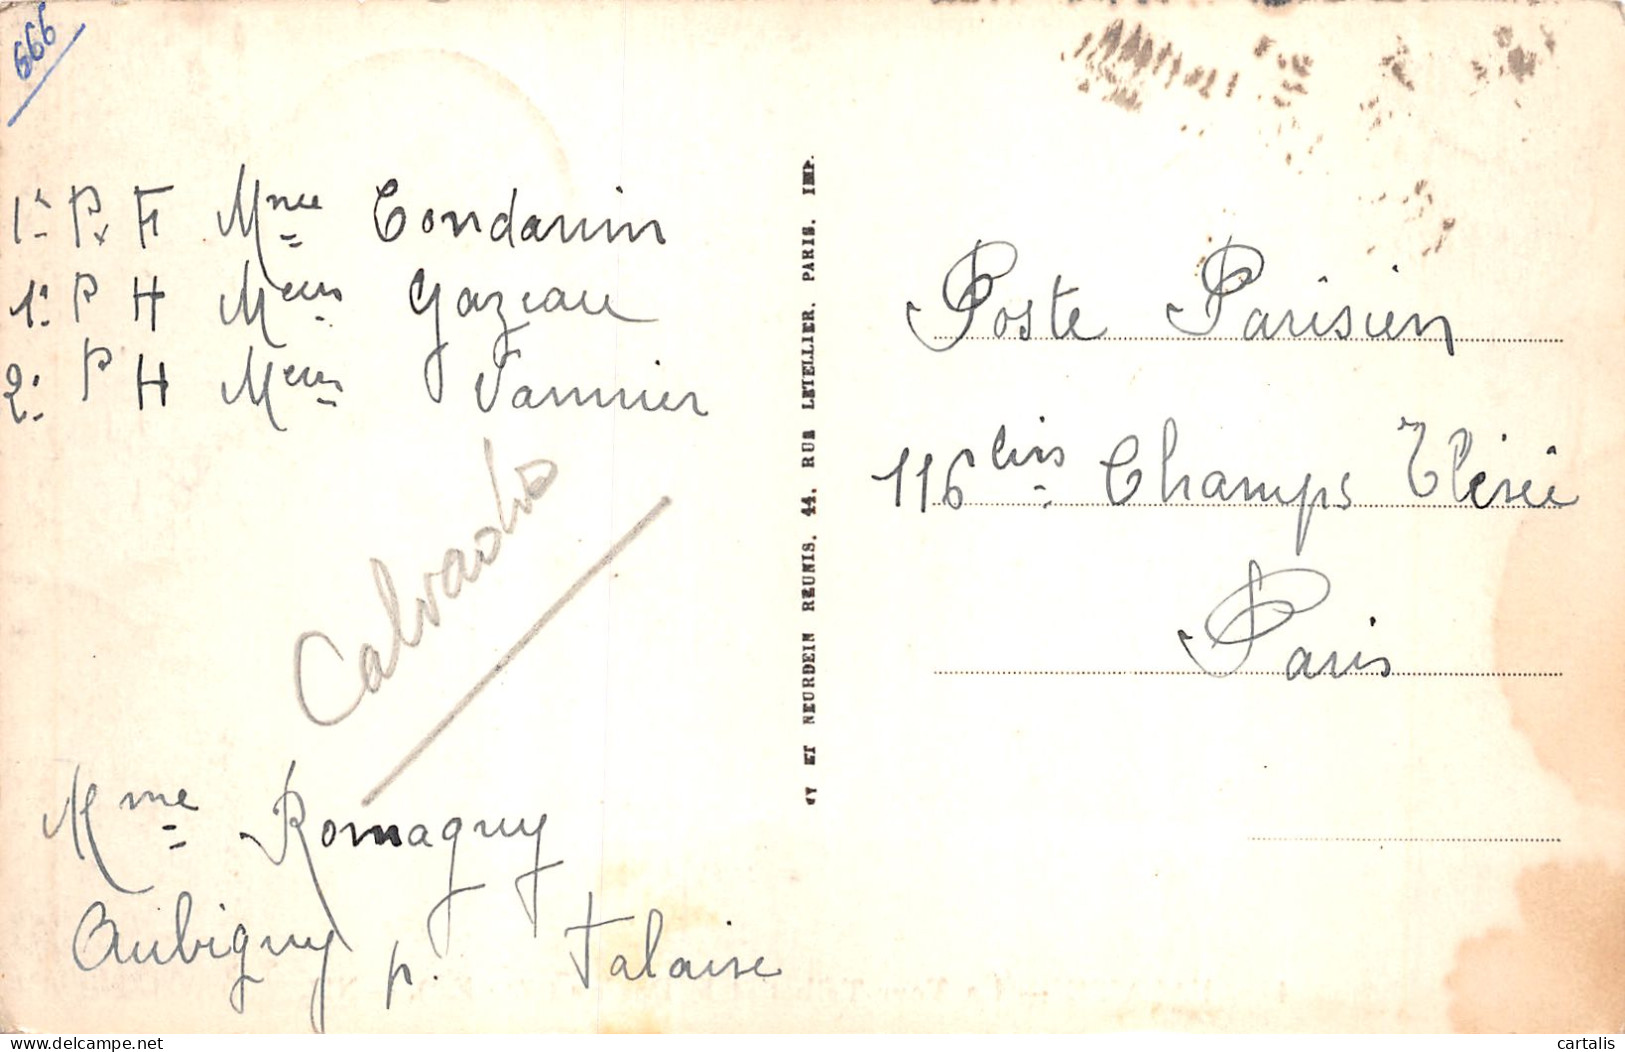 666
1º P. F Mme Condamin
1º P H Meur Gazeau
2º P H Meur Vannier
Calvados
Mme Romagny
Aubigny p. Falaise
CY ET NEURDEIN RÉUNIS. 44, RUE LETELLIER, PARIS. IMP.
Poste Parisien
116 bis Champs Elisée
Paris
cartalis
delcampe.net